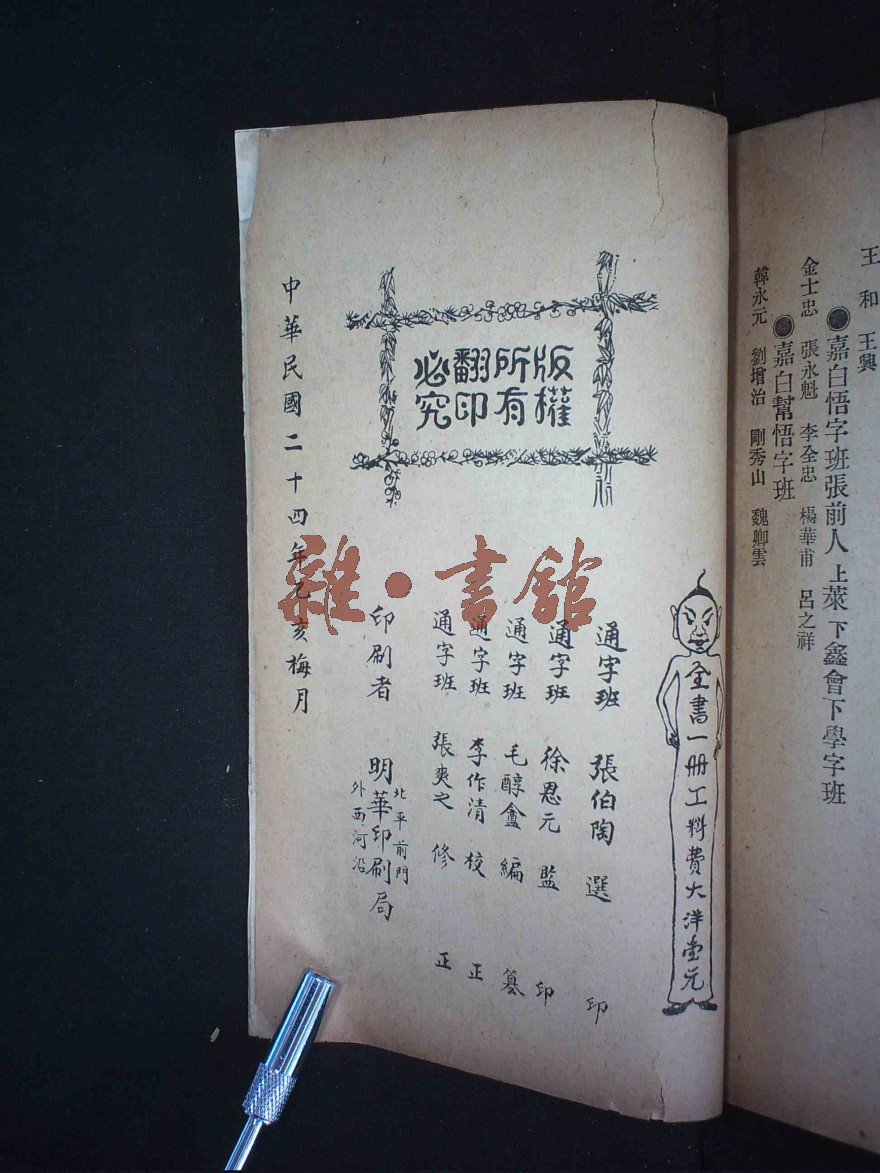 王和 王興
嘉白悟字班張前人上萊下鑫會下學字班
金士忠 張永魁 李全忠 楊華甫 呂之祥
嘉白幫悟字班
韓永元 劉增治 剛秀山 魏卿雲
全書一册工料費大洋壹元
版權
所有
翻印
必究
通字班 張伯陶 選 印
通字班 徐恩元 監 印
通字班 毛醇盦 編 纂
通字班 李作清 校 正
通字班 張爽之 修 正
北平前門
印刷者 明華印刷局
外西河沿
中華民國二十四年乙亥梅月
雜·書館